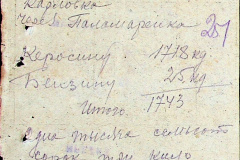 Карловка
через Паламаренка 21
Керосину 1718 кг
Бензину 25 кг
Итого 1743
одна тысяча семьсот
сорок три кило